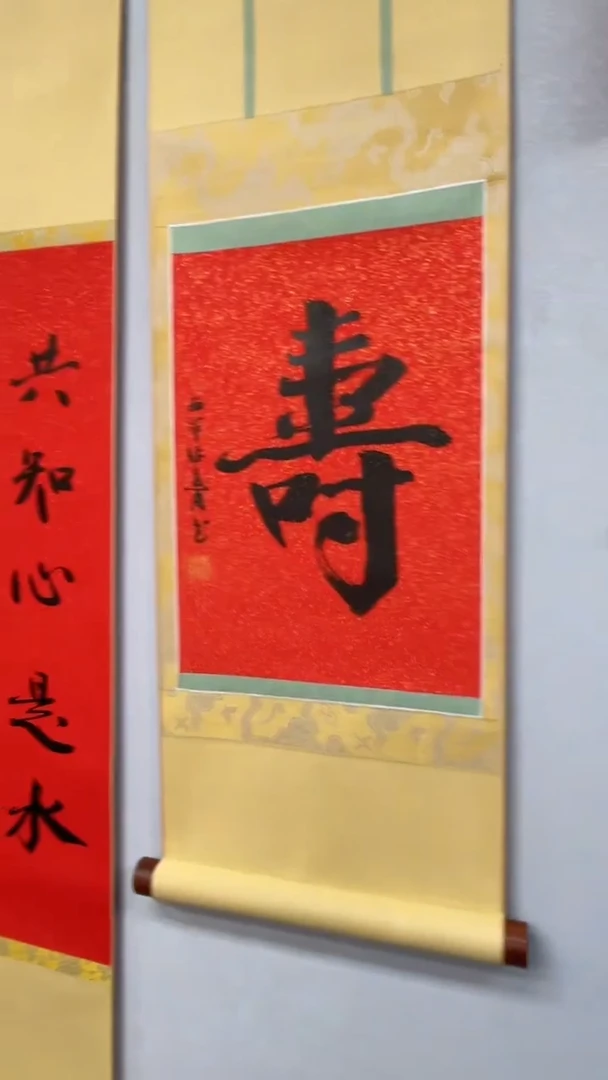 壽
共知心是水